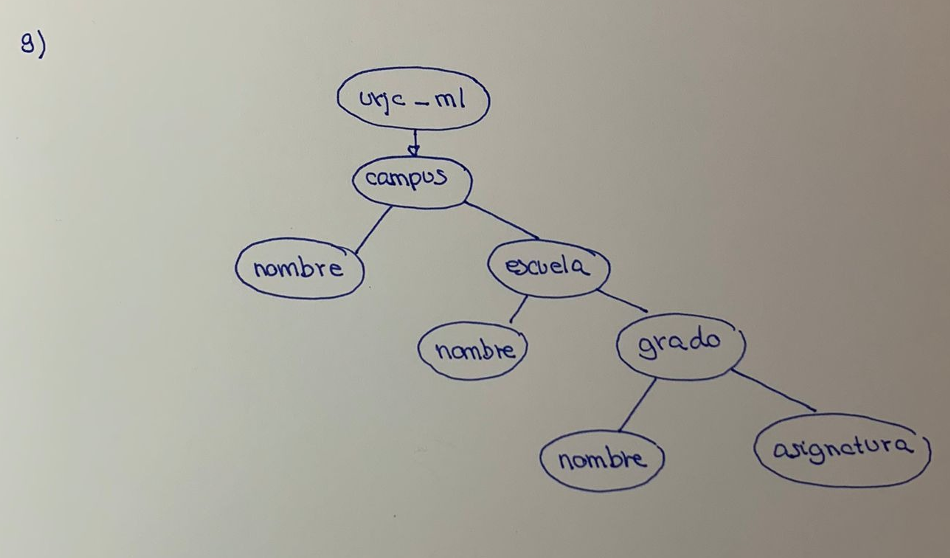 9)
urjc_ml
campus
nombre
escuela
nombre
grado
nombre
asignatura